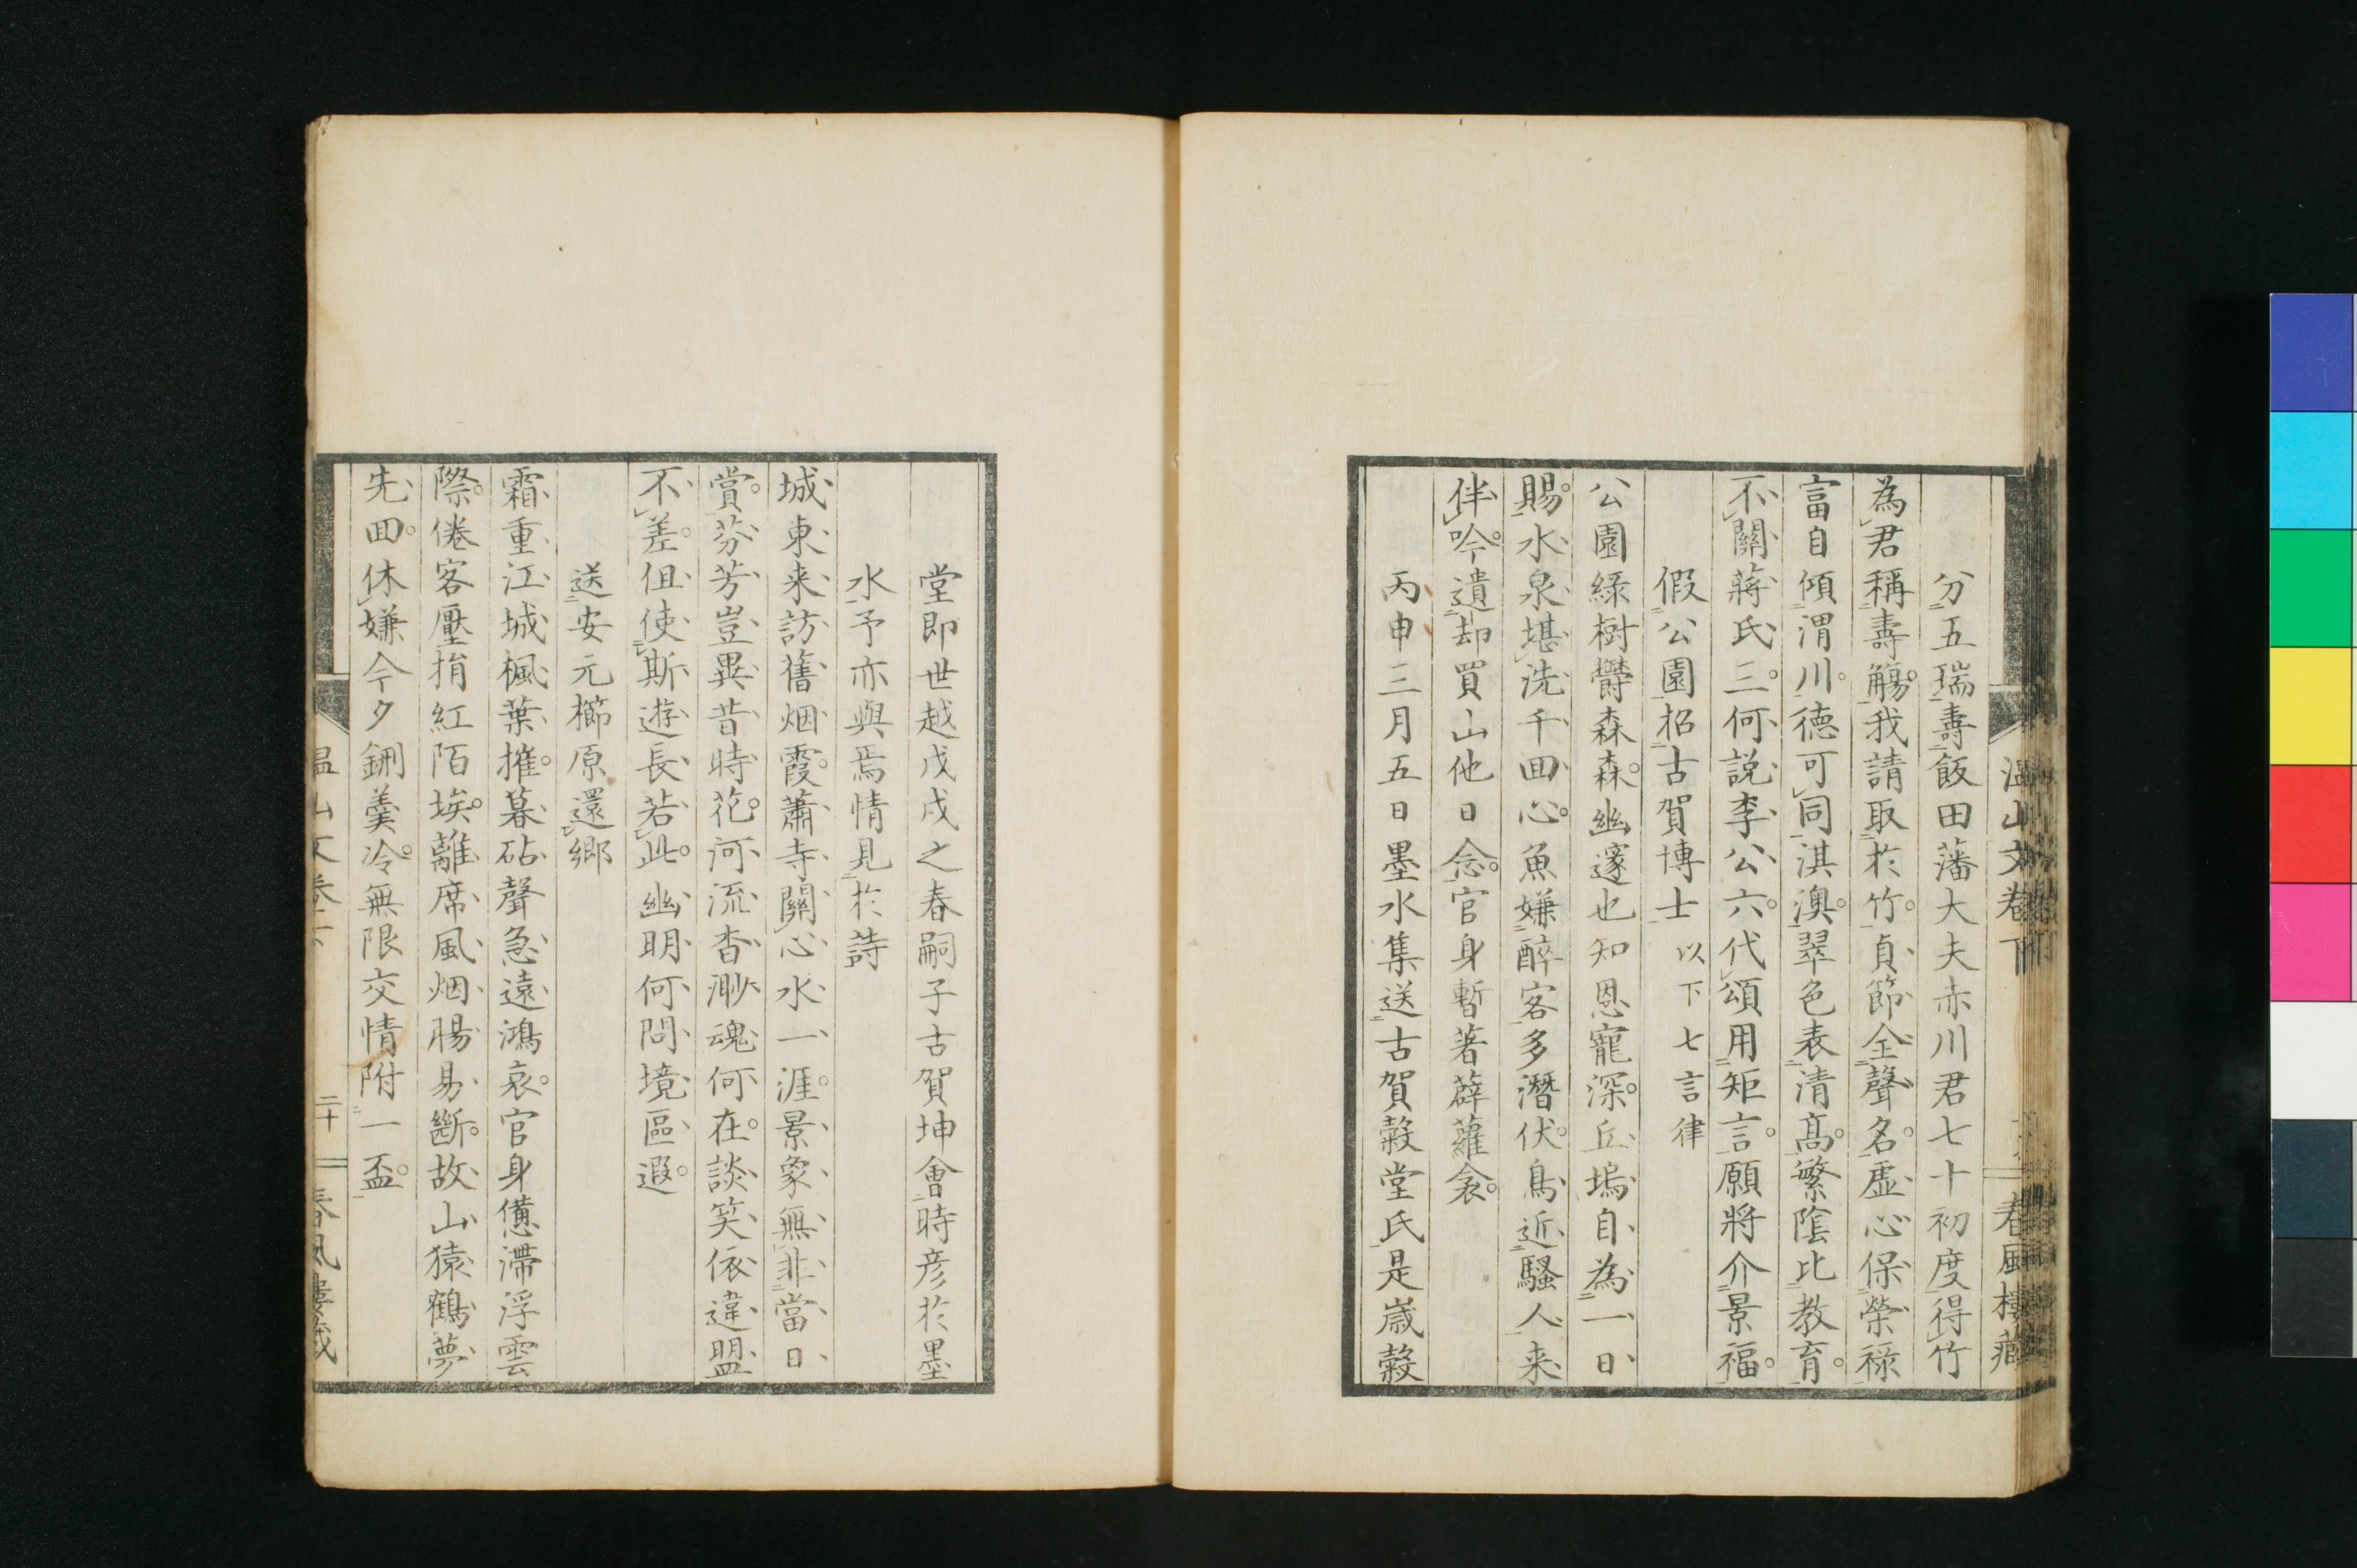 温山文卷下
春風樓藏
分五瑞壽飯田藩大夫赤川君七十初度得竹
為君稱壽觴我請取於竹貞節全聲名虛心保榮祿
富自傾渭川德可同淇澳翠色表清髙繁陰比教育
不關蔣氏三何說李公六代頌用矩言願將介景福
假公園招古賀博士以下七言律
公園緑樹欝森森幽邃也知恩寵深丘塢自為一日
賜水泉堪洗千回心魚嫌醉客多潛伏鳥近騷人来
伴吟遺却買山他日念官身暫著薜蘿衾
丙申三月五日墨水集送古賀穀堂氏是歳穀
堂即世越戊戌之春嗣子古賀坤會時彦於墨
水予亦與焉情見於詩
城東来訪舊烟霞蕭寺關心水一涯景象無非當日
賞芬芳豈異昔時花河流杳渺魂何在談笑依違盟
不差但使斯遊長若此幽明何問境區遐
送安元櫛原還鄉
霜重江城楓葉摧暮砧聲急遠鴻哀官身憊滯浮雲
際倦客壓揹紅陌埃離席風烟腸易斷故山猿鶴夢
先回休嫌今夕鉶羹冷無限交情附一盃
温山文卷下
二十
春風樓藏